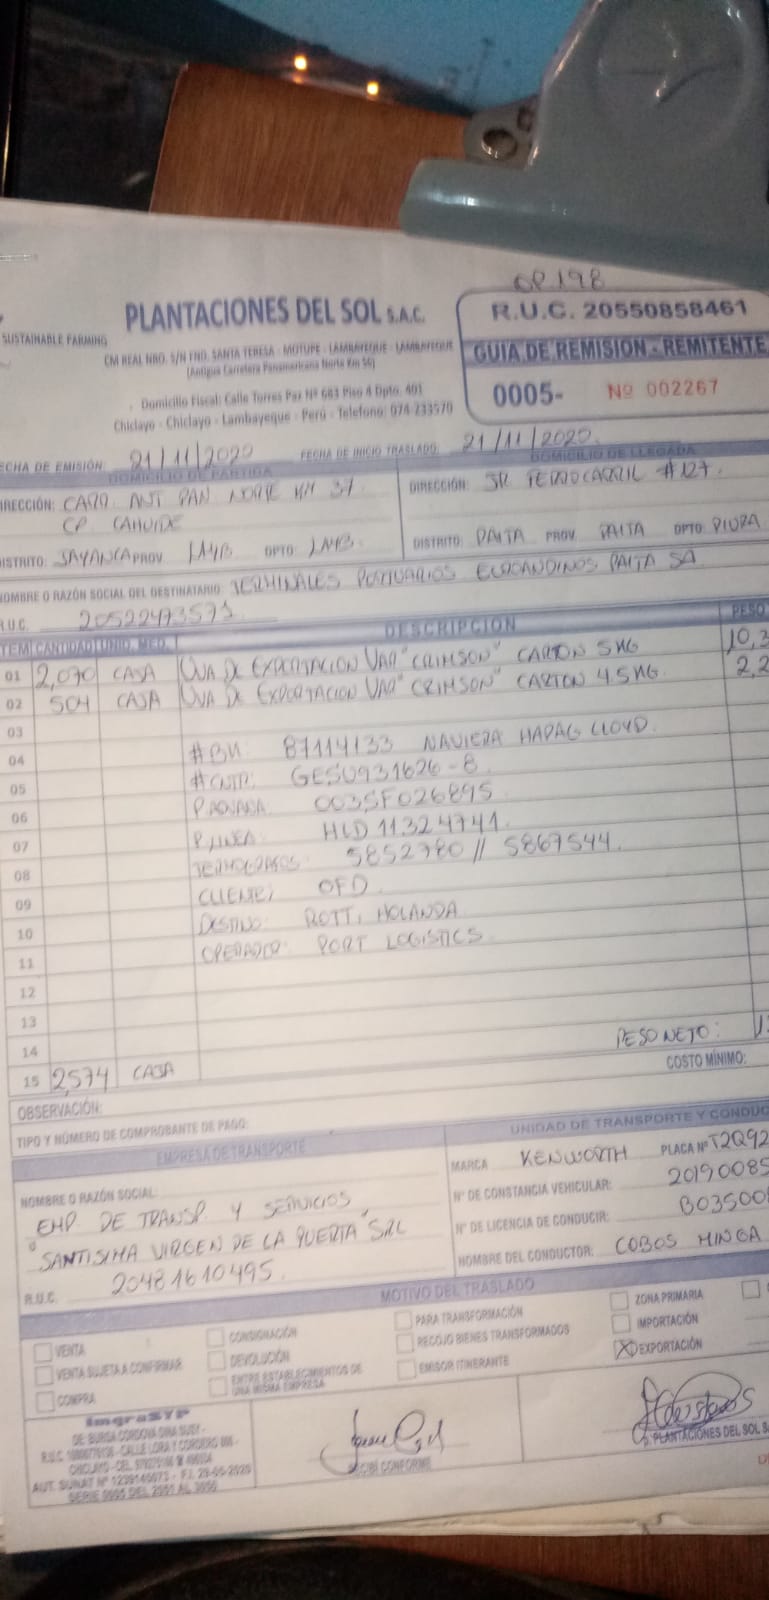 OP 198
PLANTACIONES DEL SOL S.A.C.
SUSTAINABLE FARMING
CM REAL NRO. S/N FND. SANTA TERESA - MOTUPE - LAMBAYEQUE - LAMBAYEQUE
(Antigua Carretera Panamericana Norte Km 56)
Domicilio Fiscal: Calle Torres Paz Nº 683 Piso 4 Dpto. 401
Chiclayo - Chiclayo - Lambayeque - Perú - Telefono: 074-233570
R.U.C. 20550858461
GUIA DE REMISION - REMITENTE
0005- Nº 002267
ECHA DE EMISIÓN: 21/11/2020 FECHA DE INICIO TRASLADO: 21/11/2020.
DOMICILIO DE PARTIDA DOMICILIO DE LLEGADA
DIRECCIÓN: CARR. ANT PAN NORTE KM 37
CP CAHUIDE
DIRECCIÓN: JR FERROCARRIL #127.
DISTRITO: SAYANCA PROV. LAMB DPTO: LAMB.
DISTRITO: PAITA PROV. PAITA DPTO: PIURA
NOMBRE O RAZÓN SOCIAL DEL DESTINATARIO: TERMINALES PORTUARIOS EUROANDINOS PAITA SA
R.U.C. 20522473571
ITEM CANTIDAD UNID. MED. DESCRIPCION PESO
01 2,070 CAJA UVA DE EXPORTACION VAR "CRIMSON" CARTON 5 KG 10,3
02 504 CAJA UVA DE EXPORTACION VAR "CRIMSON" CARTON 4.5 KG. 2,2
03
04 #BK: 87114133 NAVIERA HAPAG LLOYD.
05 #CNTR: GESU931626-8.
06 P.ADUANA: 003SF026895
07 P.LINEA: HLD 11324741.
08 TERMOGRAFOS: 5852780 // 5867544.
09 CLIENTE: OFD.
10 DESTINO: ROTT, HOLANDA
11 OPERADOR: PORT LOGISTICS.
12
13
14 PESO NETO:
15 2,574 CAJA COSTO MÍNIMO:
OBSERVACIÓN:
TIPO Y NÚMERO DE COMPROBANTE DE PAGO:
EMPRESA DE TRANSPORTE
UNIDAD DE TRANSPORTE Y CONDUC
NOMBRE O RAZÓN SOCIAL:
EMP. DE TRANSP. Y SERVICIOS
"SANTISIMA VIRGEN DE LA PUERTA" SRL
R.U.C. 20481610495.
MARCA KENWORTH PLACA Nº T2Q92
Nº DE CONSTANCIA VEHICULAR: 20190085
Nº DE LICENCIA DE CONDUCIR: B03500
NOMBRE DEL CONDUCTOR: COBOS MINGA
MOTIVO DEL TRASLADO
VENTA
VENTA SUJETA A CONFIRMAR
COMPRA
CONSIGNACIÓN
DEVOLUCIÓN
ENTRE ESTABLECIMIENTOS DE UNA MISMA EMPRESA
PARA TRANSFORMACIÓN
RECOJO BIENES TRANSFORMADOS
EMISOR ITINERANTE
ZONA PRIMARIA
IMPORTACIÓN
X EXPORTACIÓN
ImgraSYP
DE BURGA CORDOVA DINA SUSY -
CHICLAYO - CEL.
AUT. SUNAT Nº
SERIE 0005 DEL 2051 AL 3050
RECIBÍ CONFORME
PLANTACIONES DEL SOL S.